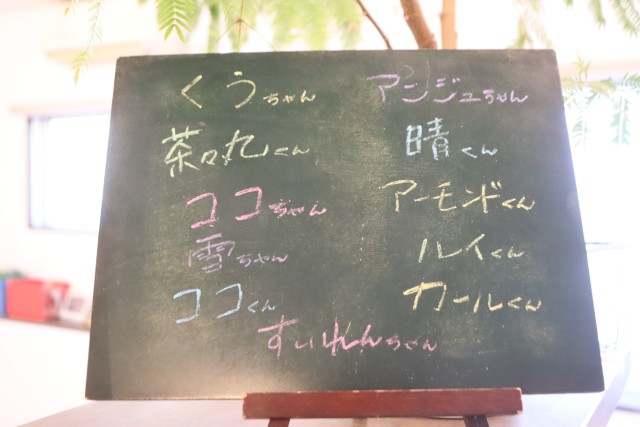 くうちゃん
茶々丸くん
ココちゃん
雪ちゃん
ココくん
アンジュちゃん
晴くん
アーモンドくん
ルイくん
カールくん
すいれんちゃん